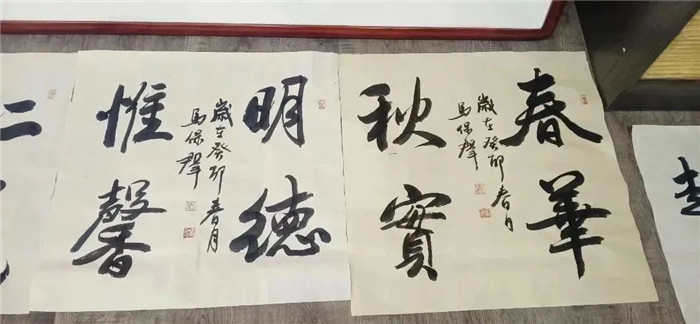 春華
秋實
歲在癸卯春月
馬保
明德
惟馨
歲在癸卯春月
馬保